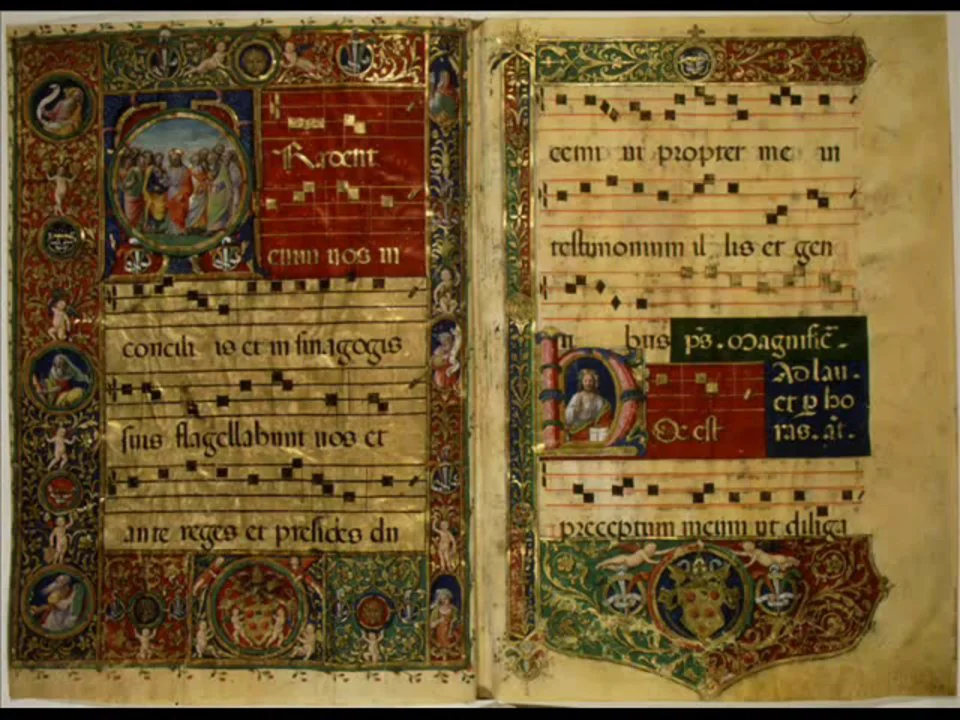 TRadent
enim uos in
concili is et in sinagogis
suis flagellabunt uos et
ante reges et presides du
cemi ni propter me in
testimonium il lis et gen
ti bus p̄s. Magnific̄.
HOc est
Ad lau.
et ꝑ ho
ras. añ.
preceptum meum ut diliga